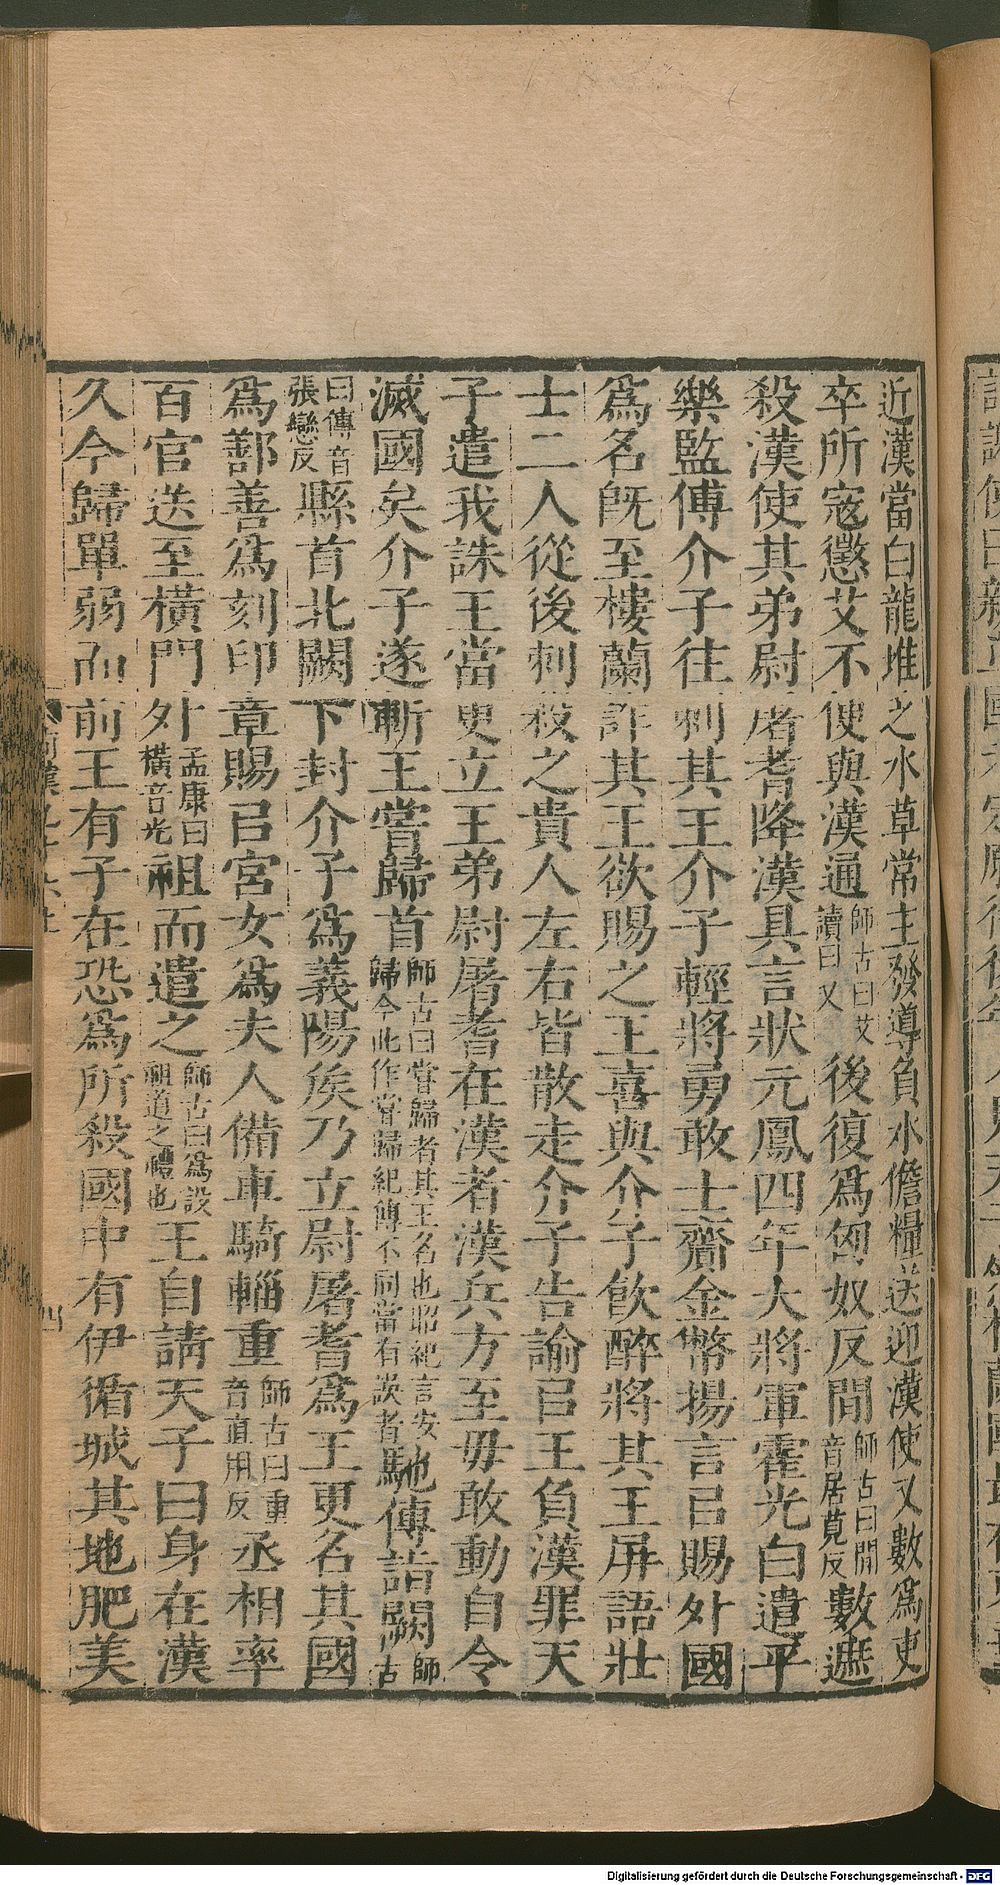 近漢當白龍堆之水草常主發導負水儋糧送迎漢使又數爲吏
卒所寇懲艾不便與漢通師古曰艾讀曰乂後復爲匈奴反間師古曰間音居莧反數遮
殺漢使其弟尉屠耆降漢具言狀元鳳四年大將軍霍光白遣平
樂監傅介子往刺其王介子輕將勇敢士齎金幣揚言㠯賜外國
爲名既至樓蘭詐其王欲賜之王喜與介子飲醉將其王屏語壯
士二人從後刺殺之貴人左右皆散走介子告諭㠯王負漢罪天
子遣我誅王當更立王弟尉屠耆在漢者漢兵方至毋敢動自令
滅國矣介子遂斬王嘗歸首師古曰嘗歸者其王名也昭紀言安歸今此作嘗歸紀傳不同當有誤者馳傳詣闕師古
曰傳音張戀反縣首北闕下封介子爲義陽矦乃立尉屠耆爲王更名其國
爲鄯善爲刻印章賜㠯宮女爲夫人備車騎輜重師古曰重音直用反丞相率
百官送至橫門外孟康曰橫音光祖而遣之師古曰爲設祖道之禮也王自請天子曰身在漢
久今歸單弱而前王有子在恐爲所殺國中有伊循城其地肥美
四
Digitalisierung gefördert durch die Deutsche Forschungsgemeinschaft - DFG